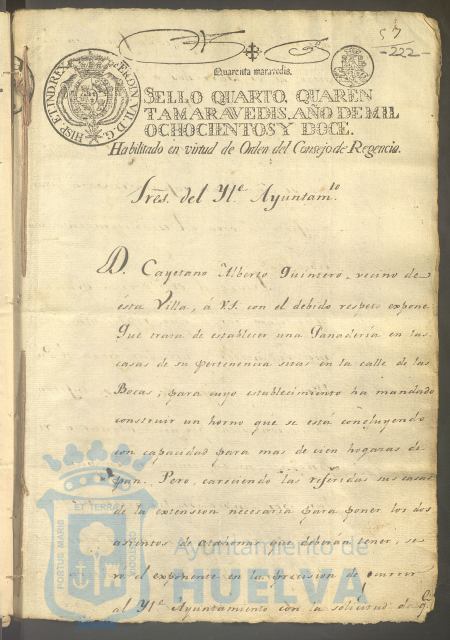 57
-222-
Quarenta maravedis.
SELLO QUARTO, QUAREN
TA MARAVEDIS, AÑO DE MIL
OCHOCIENTOS Y DOCE.
Habilitado en virtud de Orden del Consejo de Regencia.
HISP. ET IND. REX
FERDIN. VII. D. G.
Sres. del Yl.e Ayuntam.to
D. Cayetano Alberto Quintero, vecino de
esta Villa, á V.S. con el debido respeto expone
Que trata de establecer una Panadería en las
casas de su pertenencia sitas en la calle de las
Bocas; para cuyo establecimiento ha mandado
construir un horno que se está concluyendo
con capacidad para mas de cien hogazas de
pan. Pero, careciendo las referidas sus casas
de la extension necesaria para poner los dos
asientos de atahonas que deberan tener, se
el exponente en la precision de ocurrir
al Yl.e Ayuntamiento con la solicitud de q.e
PORTUS MARIS
ET TERRAE
CUSTODIA
Ayuntamiento de
HUELVA